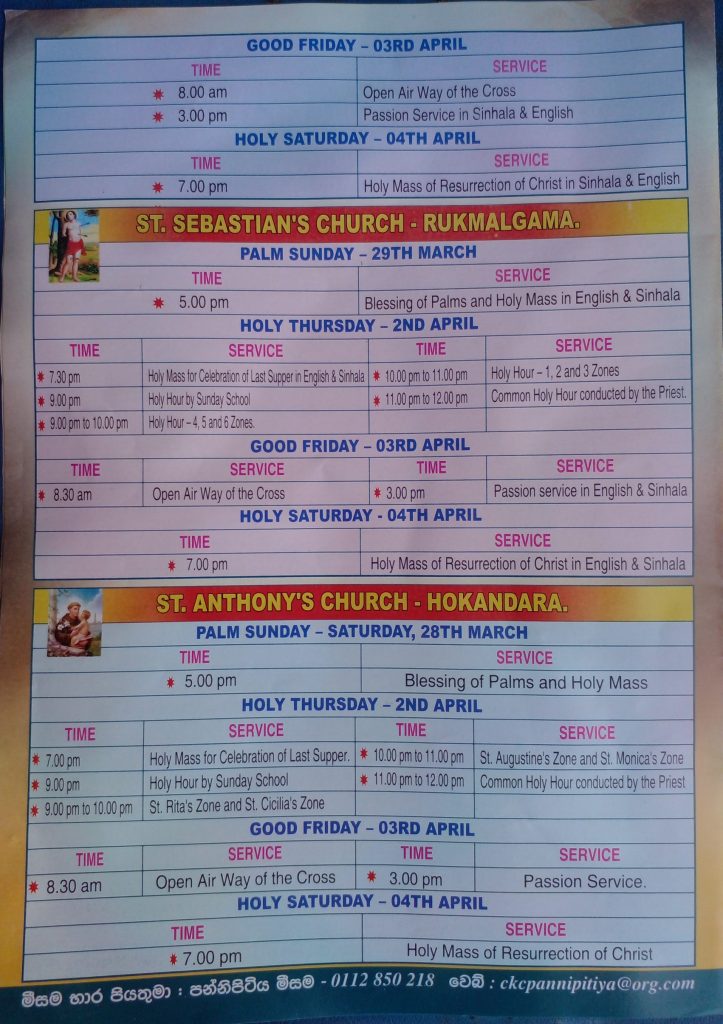 GOOD FRIDAY – 03RD APRIL
TIME SERVICE
8.00 am Open Air Way of the Cross
3.00 pm Passion Service in Sinhala & English
HOLY SATURDAY – 04TH APRIL
TIME SERVICE
7.00 pm Holy Mass of Resurrection of Christ in Sinhala & English
ST. SEBASTIAN'S CHURCH - RUKMALGAMA.
PALM SUNDAY – 29TH MARCH
TIME SERVICE
5.00 pm Blessing of Palms and Holy Mass in English & Sinhala
HOLY THURSDAY – 2ND APRIL
TIME SERVICE TIME SERVICE
7.30 pm Holy Mass for Celebration of Last Supper in English & Sinhala 10.00 pm to 11.00 pm Holy Hour – 1, 2 and 3 Zones
9.00 pm Holy Hour by Sunday School 11.00 pm to 12.00 pm Common Holy Hour conducted by the Priest.
9.00 pm to 10.00 pm Holy Hour – 4, 5 and 6 Zones.
GOOD FRIDAY – 03RD APRIL
TIME SERVICE TIME SERVICE
8.30 am Open Air Way of the Cross 3.00 pm Passion service in English & Sinhala
HOLY SATURDAY - 04TH APRIL
TIME SERVICE
7.00 pm Holy Mass of Resurrection of Christ in English & Sinhala
ST. ANTHONY'S CHURCH - HOKANDARA.
PALM SUNDAY – SATURDAY, 28TH MARCH
TIME SERVICE
5.00 pm Blessing of Palms and Holy Mass
HOLY THURSDAY – 2ND APRIL
TIME SERVICE TIME SERVICE
7.00 pm Holy Mass for Celebration of Last Supper. 10.00 pm to 11.00 pm St. Augustine's Zone and St. Monica's Zone
9.00 pm Holy Hour by Sunday School 11.00 pm to 12.00 pm Common Holy Hour conducted by the Priest
9.00 pm to 10.00 pm St. Rita's Zone and St. Cicilia's Zone
GOOD FRIDAY – 03RD APRIL
TIME SERVICE TIME SERVICE
8.30 am Open Air Way of the Cross 3.00 pm Passion Service.
HOLY SATURDAY – 04TH APRIL
TIME SERVICE
7.00 pm Holy Mass of Resurrection of Christ
මීසම භාර පියතුමා : පන්නිපිටිය මීසම - 0112 850 218 වෙබ් : ckcpannipitiya@org.com